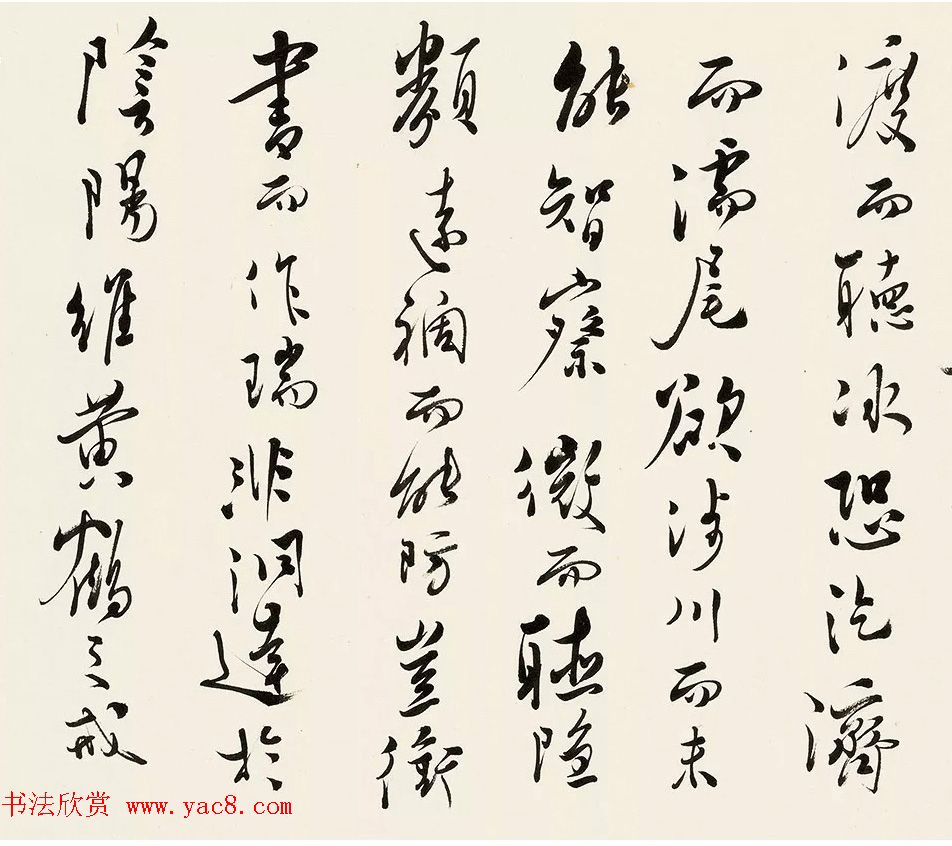 渡而聽冰恐汔濟
而濡尾欲涉川而未
能智察微而聽隱
類遠禍而能防豈銜
書而作瑞非洞達於
陰陽維黄鶴之戒
书法欣赏 www.yac8.com